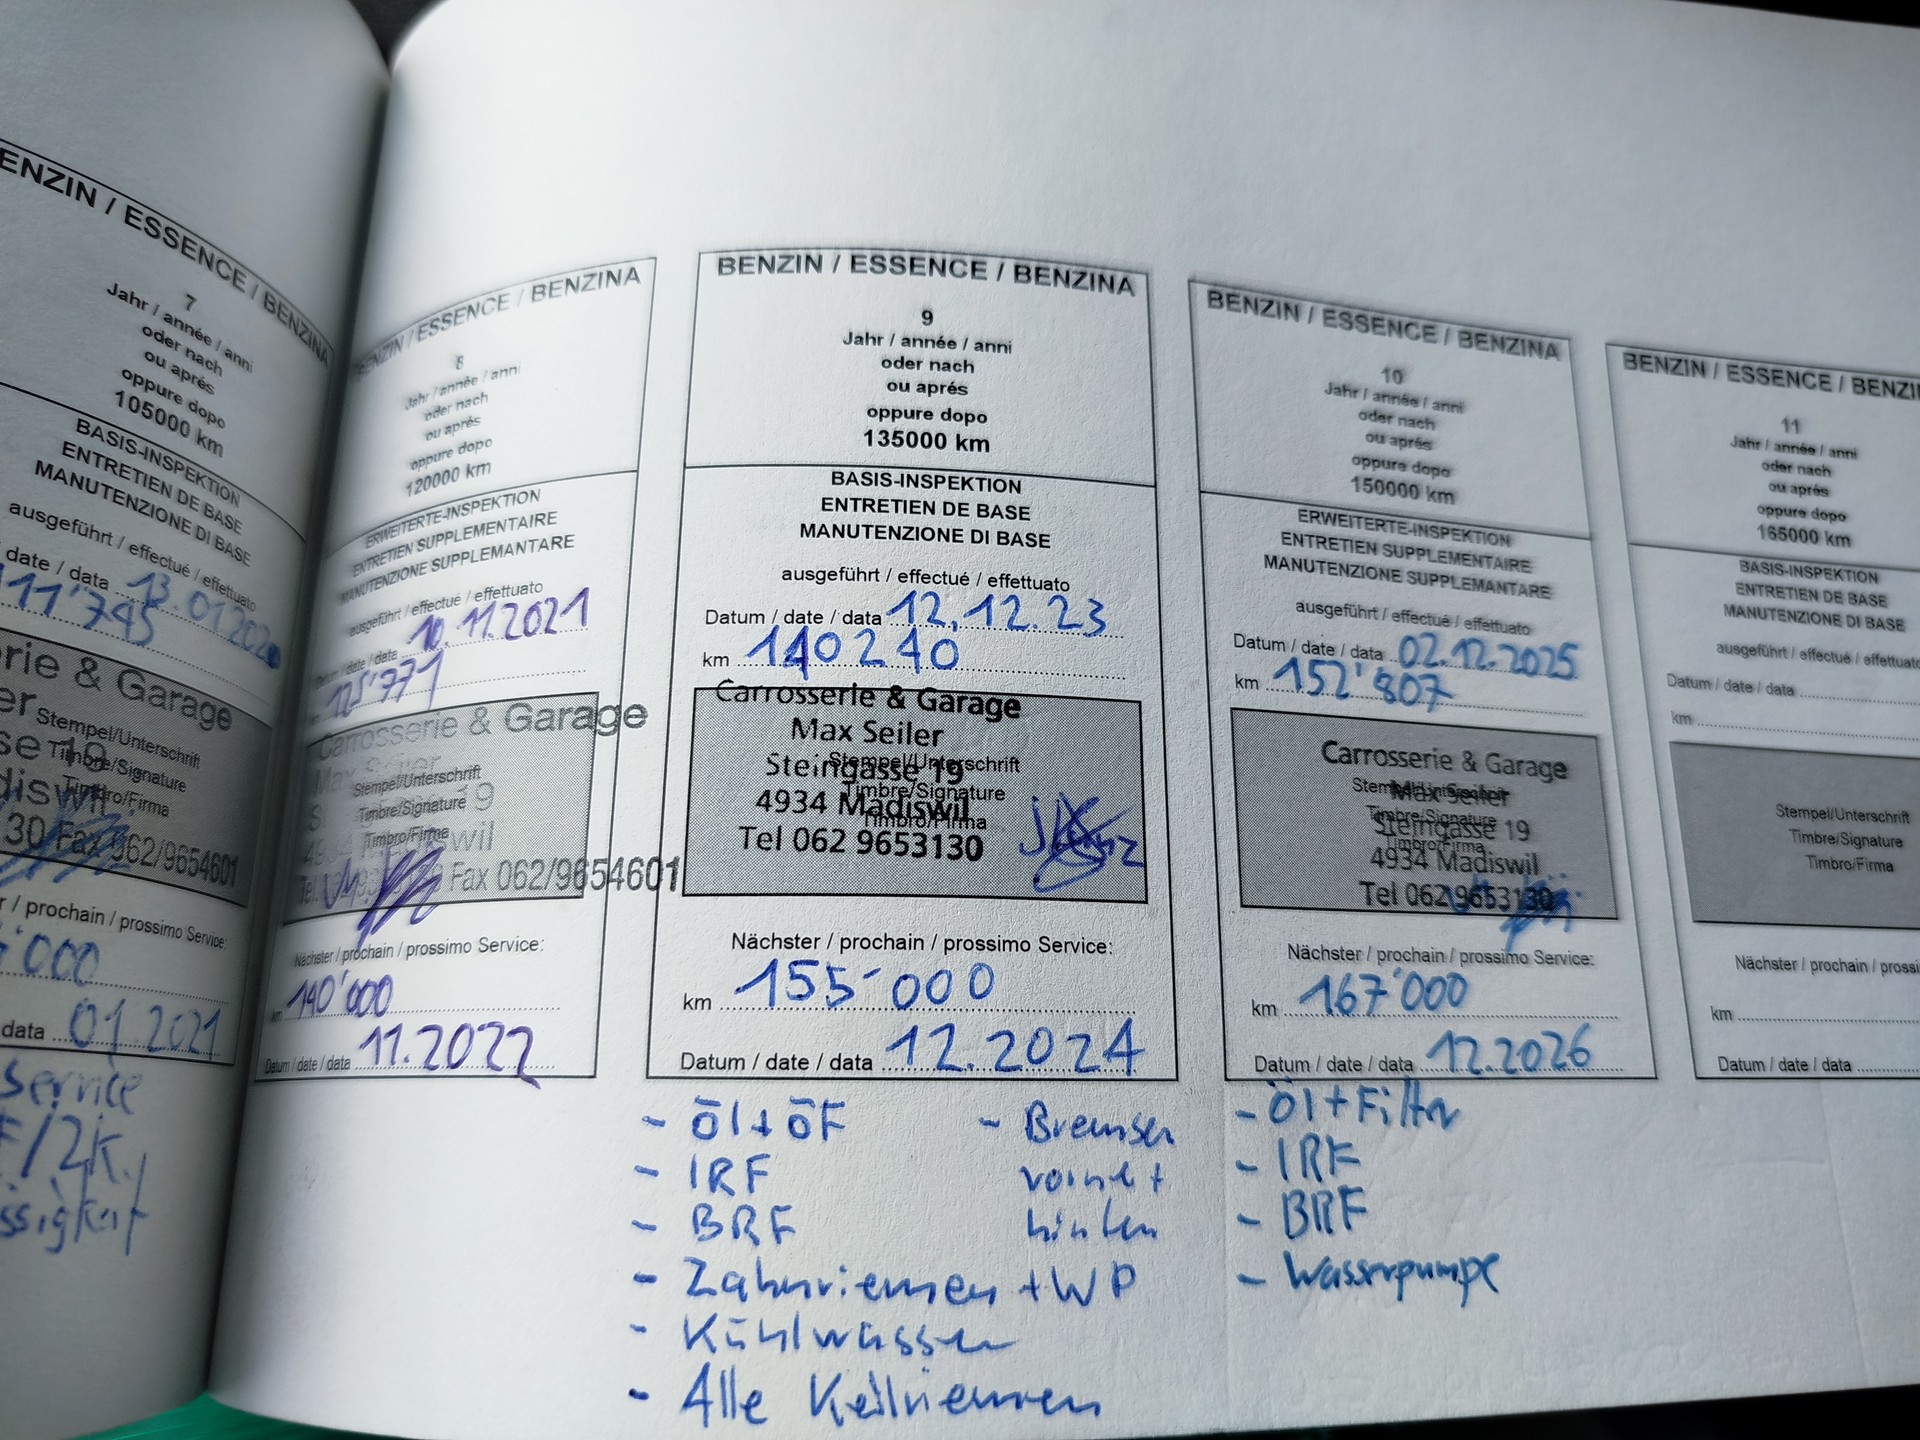 ENZIN / ESSENCE / BENZINA
7
Jahr / année / anni
oder nach
ou aprés
oppure dopo
105000 km
BASIS-INSPEKTION
ENTRETIEN DE BASE
MANUTENZIONE DI BASE
ausgeführt / effectué / effettuato
date / data 13.01.2020
11'745
rie & Garage
er Stempel/Unterschrift
se 19 Timbre/Signature
diswil Timbro/Firma
30 Fax 062/9654601
r / prochain / prossimo Service:
'000
data 01.2021
Service
F/2K.
ssigkeit
BENZIN / ESSENCE / BENZINA
8
Jahr / année / anni
oder nach
ou aprés
oppure dopo
120000 km
ERWEITERTE-INSPEKTION
ENTRETIEN SUPPLEMENTAIRE
MANUTENZIONE SUPPLEMANTARE
ausgeführt / effectué / effettuato
Datum / date / data 10.11.2021
km 125'771
Carrosserie & Garage
Max Seiler
Stempel/Unterschrift
Timbre/Signature 19
Timbro/Firma
Tel. Fax 062/9654601
Nächster / prochain / prossimo Service:
km 140'000
Datum / date / data 11.2022
BENZIN / ESSENCE / BENZINA
9
Jahr / année / anni
oder nach
ou aprés
oppure dopo
135000 km
BASIS-INSPEKTION
ENTRETIEN DE BASE
MANUTENZIONE DI BASE
ausgeführt / effectué / effettuato
Datum / date / data 12.12.23
km 140240
Carrosserie & Garage
Max Seiler
Stempel/Unterschrift
Steingasse 19
Timbre/Signature
4934 Madiswil
Timbro/Firma
Tel 062 9653130
Nächster / prochain / prossimo Service:
km 155'000
Datum / date / data 12.2024
- Öl + ÖF
- IRF
- BRF
- Zahnriemen + WP
- Kühlwasser
- Alle Keilriemen
- Bremsen
vorne +
hinten
BENZIN / ESSENCE / BENZINA
10
Jahr / année / anni
oder nach
ou aprés
oppure dopo
150000 km
ERWEITERTE-INSPEKTION
ENTRETIEN SUPPLEMENTAIRE
MANUTENZIONE SUPPLEMANTARE
ausgeführt / effectué / effettuato
Datum / date / data 02.12.2025
km 152'807
Carrosserie & Garage
Stempel/Unterschrift
Max Seiler
Timbre/Signature
Steingasse 19
Timbro/Firma
4934 Madiswil
Tel 062 9653130
Nächster / prochain / prossimo Service:
km 167'000
Datum / date / data 12.2026
- Öl + Filter
- IRF
- BRF
- Wasserpumpe
BENZIN / ESSENCE / BENZI
11
Jahr / année / anni
oder nach
ou aprés
oppure dopo
165000 km
BASIS-INSPEKTION
ENTRETIEN DE BASE
MANUTENZIONE DI BASE
ausgeführt / effectué / effettuato
Datum / date / data
km
Stempel/Unterschrift
Timbre/Signature
Timbro/Firma
Nächster / prochain / prossi
km
Datum / date / data